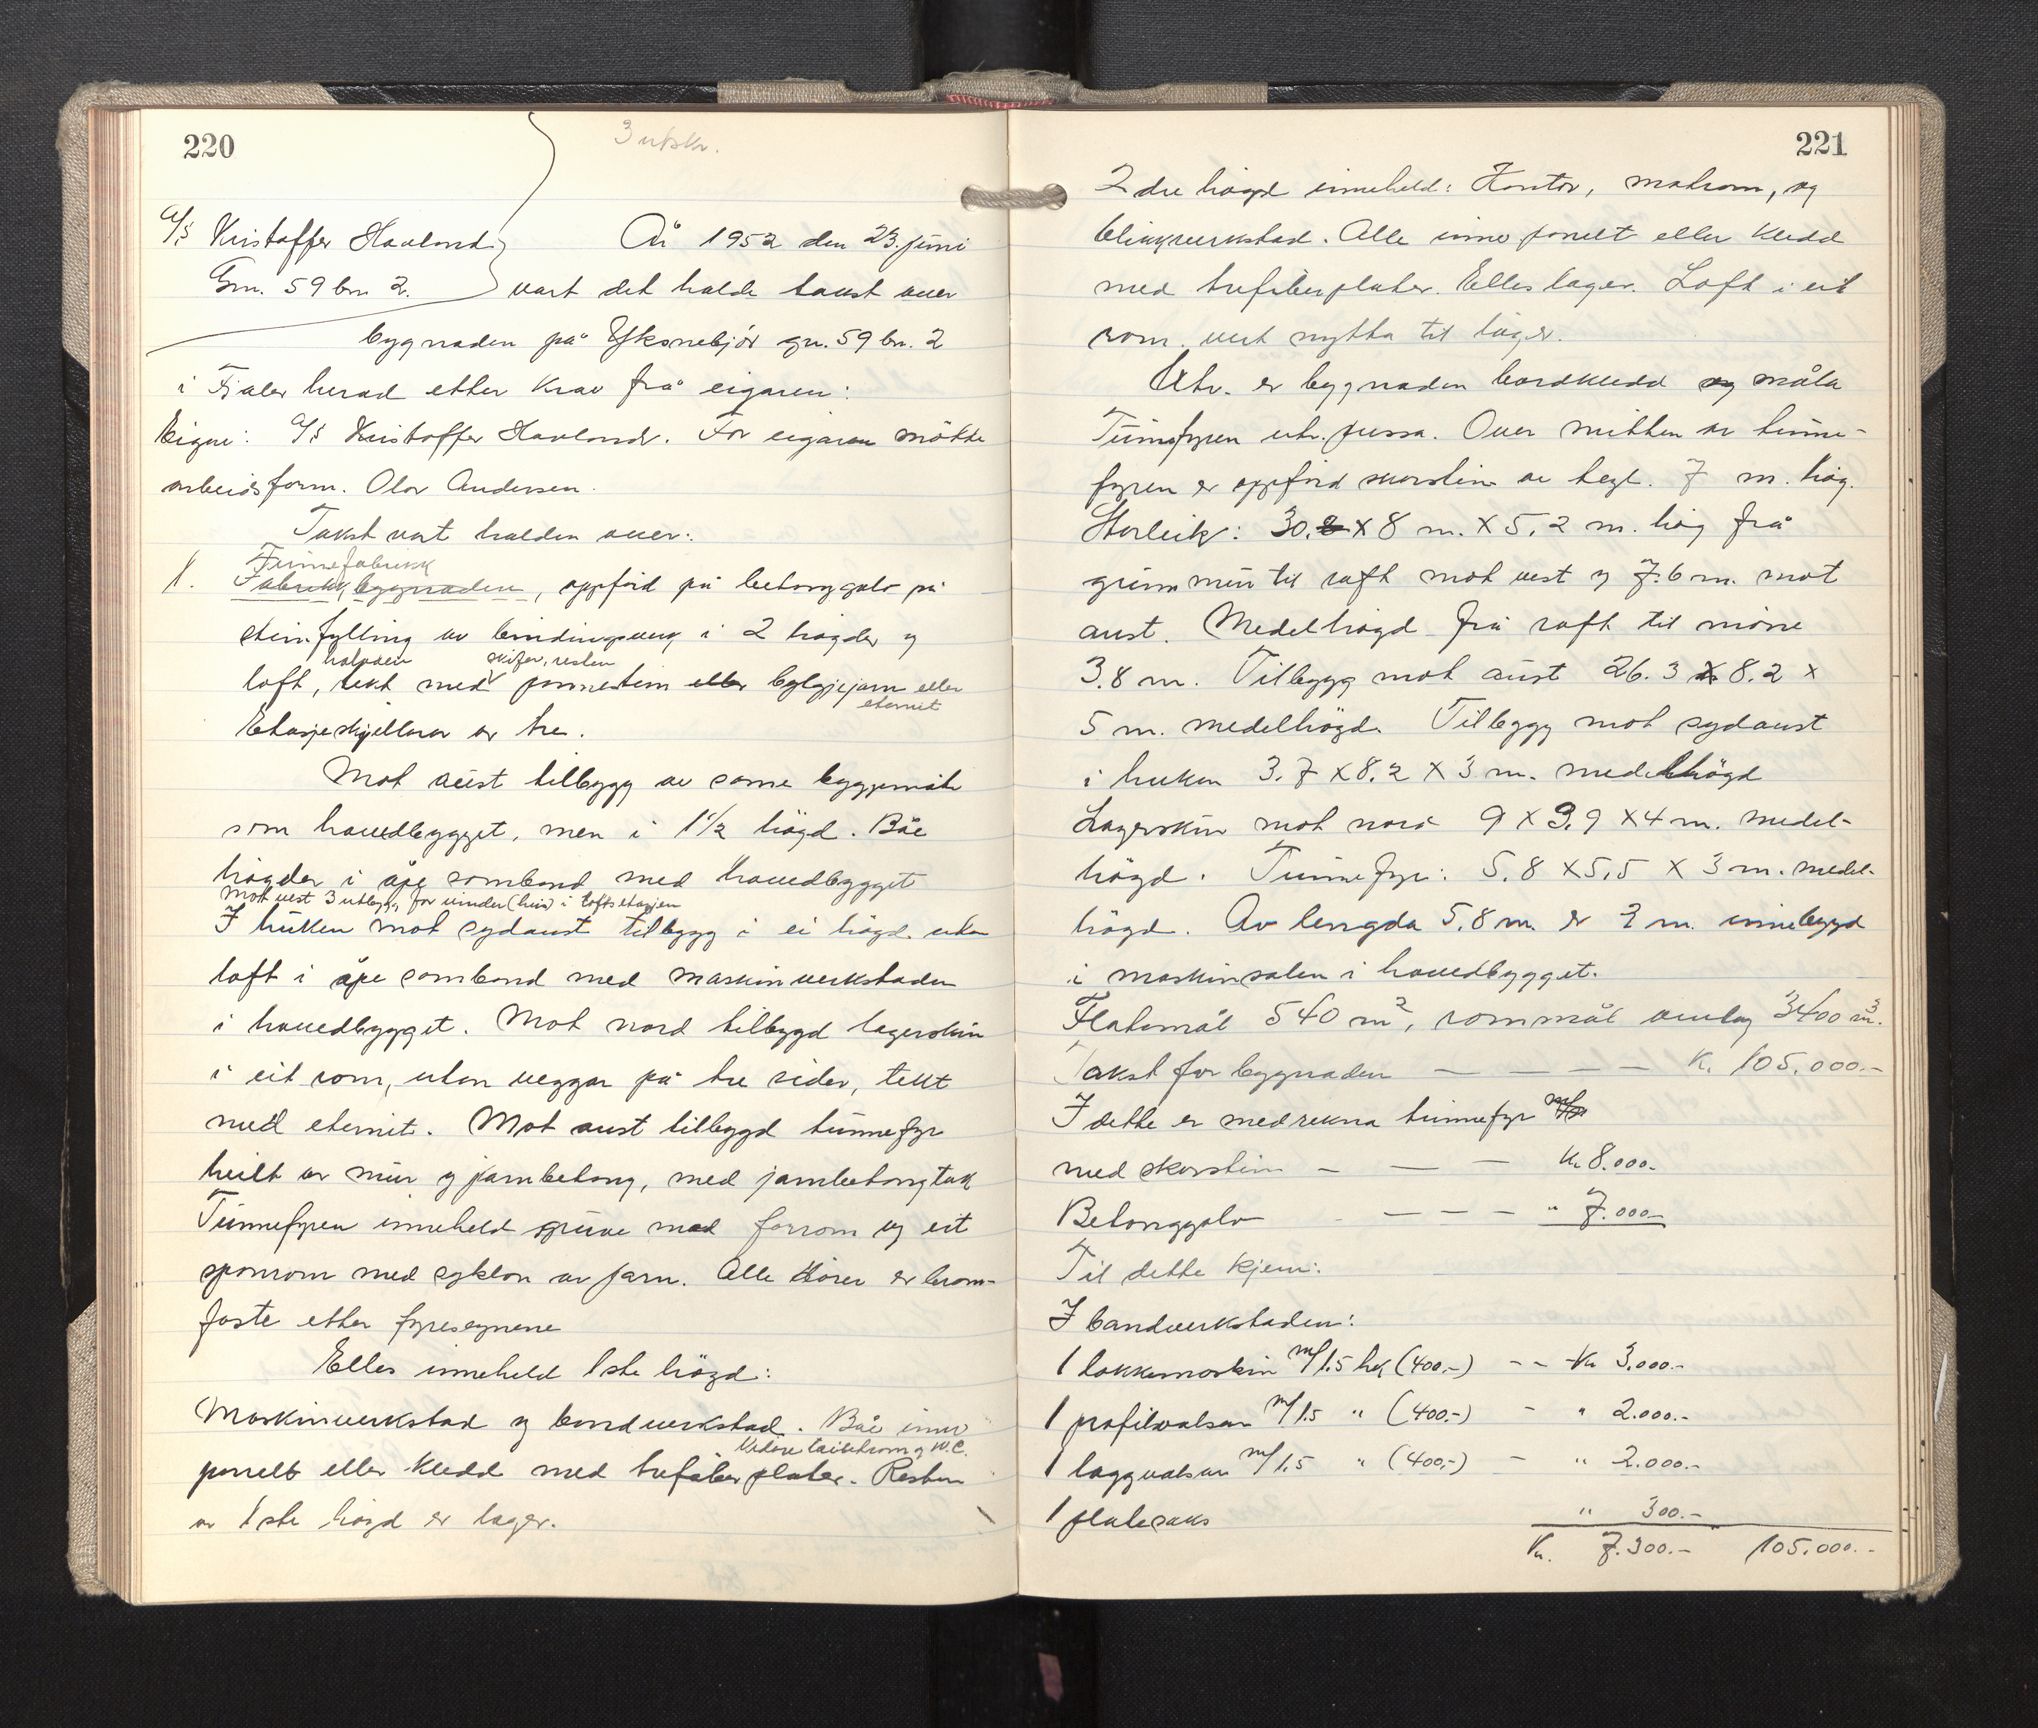 220
3 utskr.
A/S Kristoffer Havland,
Gnr. 59 bnr. 2.
År 1952 den 23. juni
vart det halde takst over
bygnaden på Yksnebjör gnr. 59 bnr. 2
i Fjaler herad etter krav frå eigaren:
Eigar: A/S Kristoffer Havland. For eigaren mötte
arbeidsform. Olav Andersen.
Takst vart halden over:
Tunnefabrikk
1. Fabrikkbygnaden, oppförd på betonggolv på
steinfylling av bindingsverk i 2 högder og
halvden skifer, resten
loft, tekt med pannestein eller bylgjejarn eller
eternit
Etasjeskjellarar av tre.
Mot aust tilbygg av same byggjemåte
som hovedbygget, men i 1 1/2 högd. Båe
högder i åpe samband med hovedbygget
Mot vest 3 utbygg for vinder (heis) i loftsetasjen
I huken mot sydaust tilbygg i ei högd utan
loft i åpe samband med maskinverkstaden
i hovedbygget. Mot nord tilbygd lagerskur
i eit rom, utan veggar på tre sider, tekt
med eternit. Mot aust tilbygd tunnefyr
heilt av mur og jarnbetong, med jarnbetongtak
Tunnefyren inneheld gruve med forrom og eit
sponrom med syklon av jarn. Alle dörer er brann-
faste etter fyresegnene
Elles inneheld 1ste högd:
Maskinverkstad og bandverkstad. Båe innv.
Vidare toilettrom og W.C.
panelt eller kledd med trefiberplater. Resten
av 1ste högd er lager.
221
2dre högd inneheld: Kontor, matrom, og
blikkverkstad. Alle innv panelt eller kledd
med trefiberplater. Elles lager. Loft i eit
rom. vert nytta til lager.
Utv. er bygnaden bordkledd og måla
Tunnefyren utv. pussa. Over midten av tunne-
fyren er oppförd skorstein av tegl. 7 m. höy.
Storleik: 30.8 x 8 m. x 5,2 m. höy frå
grunnmur til raft mot vest og 7.6 m. mot
aust. Medelhögd frå raft til möne
3.8 m. Tilbygg mot aust 26.3 x 8.2 x
5 m. medelhögd. Tilbygg mot sydaust
i huken 3.7 x 8.2 x 3 m. medelhögd
Lagerskur mot nord 9 x 3.9 x 4 m. medel-
högd. Tunnefyr: 5.8 x 5,5 x 3 m. medel-
högd. Av lengda 5,8 m. er 2 m. innebygd
i maskinsalen i hovedbygget.
Flatemål 540 m², rommål omlag 3400 m³.
Takst for bygnaden — — — — K. 105.000.-
I dette er medrekna tunnefyr
med skorstein — — — Kr 8.000.-
Betonggolv — — — " 7.000.-
Til dette kjem:
I bandverkstaden:
1 lokkemaskin m/1.5 hk (400.-) - - Kr 3.000.-
1 profilvalse m/1.5 " (400.-) - " 2.000.-
1 laggvalse m/1.5 " (400.-) - " 2.000.-
1 platesaks " 300.-
Kr. 7.300.- 105.000.-